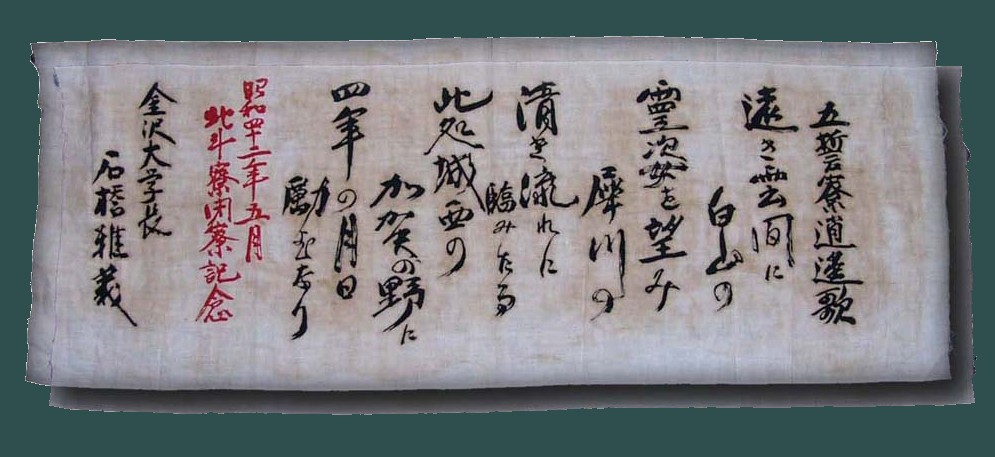 寮逍遥歌
遠き雲間に
白山の
霊姿を望み
犀川の
清き流れに
臨みたる
此処城西の
加賀の野に
四年の月日
励むなり
昭和四十二年五月
北斗寮閉寮記念
金沢大学長
石橋雅義